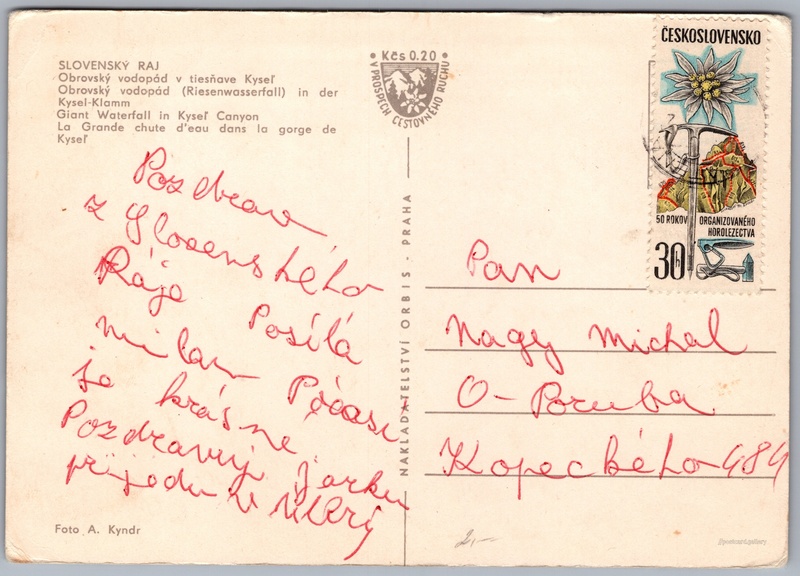 SLOVENSKÝ RAJ
Obrovský vodopád v tiesňave Kyseľ
Obrovský vodopád (Riesenwasserfall) in der
Kysel-Klamm
Giant Waterfall in Kyseľ Canyon
La Grande chute d'eau dans la gorge de
Kyseľ
Kčs 0.20
V PROSPECH CESTOVNÉHO RUCHU
ČESKOSLOVENSKO
50 ROKOV ORGANIZOVANÉHO
HOROLEZECTVA
30
Pozdrav
z Slovenského
Ráje Posílá
milan Póčasi
je krásne.
Pozdravuj Jarku
přijedu v úterý
NAKLADATELSTVÍ ORBIS - PRAHA
Pan
Nagy Michal
O-Poruba
Kopeckého 484
Foto A. Kyndr
2,-